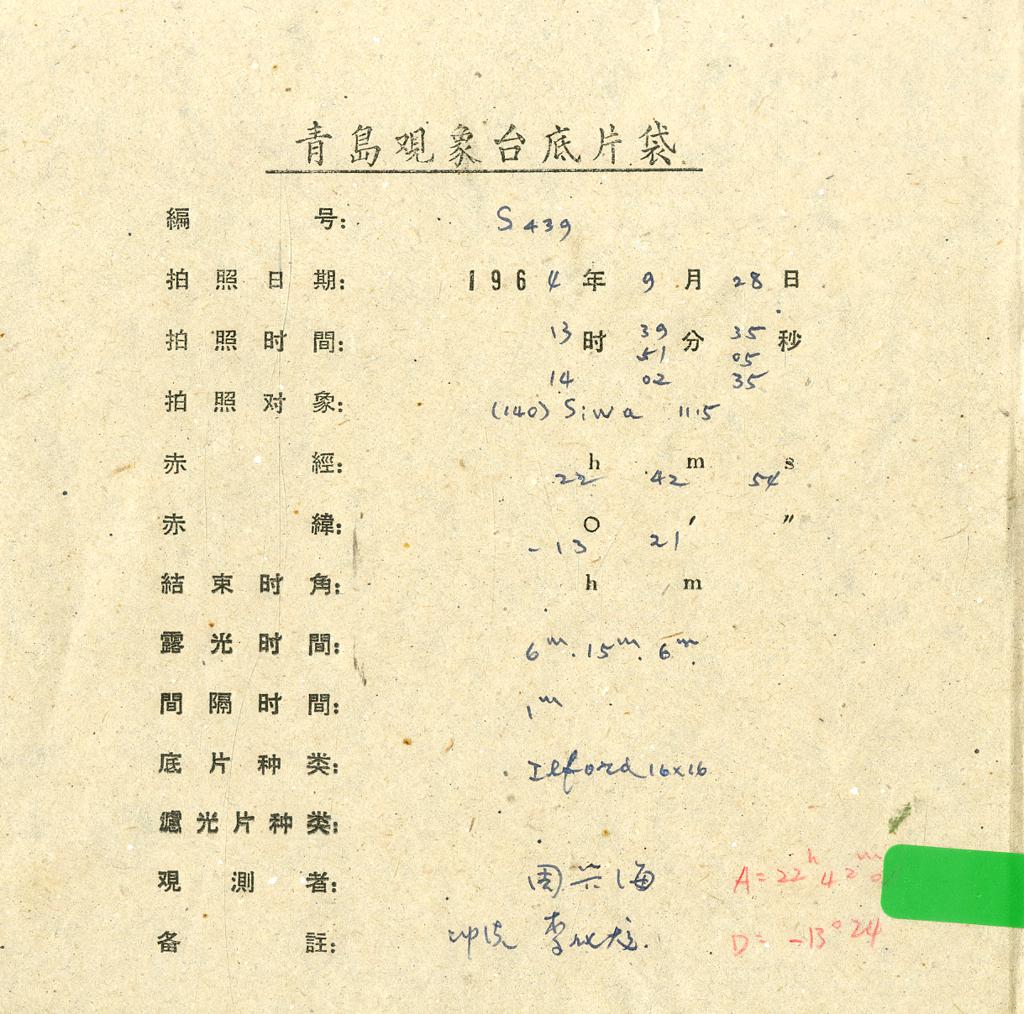 青島观象台底片袋
編号: S439
拍照日期: 1964年9月28日
拍照时間: 13时39分35秒
51 05
14 02 35
拍照对象: (140) Siwa 11.5
赤經: 22h 42m 54s
赤緯: -13° 21′ ″
結束时角: h m
露光时間: 6m. 15m. 6m.
間隔时間: 1m
底片种类: Ilford 16×16
濾光片种类:
观測者: 周兴海 A=22h 42m
备註: 冲洗 李 D= -13°24